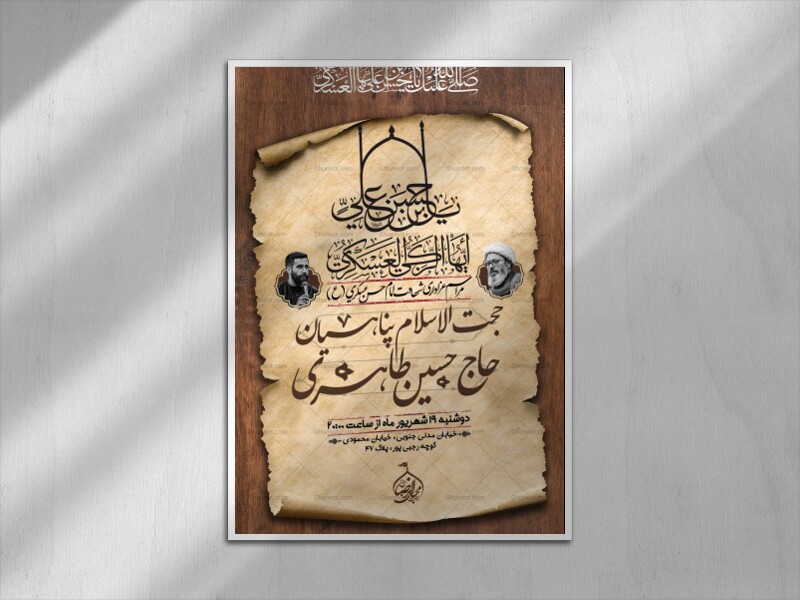 صلی الله علیک یا حسن بن علی ایها العسکری
یا حسن بن علی
أیها الزکی العسکری
مراسم عزاداری شهادت امام حسن عسکری (ع)
حجت الاسلام پناهیان
حاج حسین طاهری
دوشنبه ۱۹ شهریور ماه از ساعت ۲۰:۰۰
خیابان مدنی جنوبی، خیابان محمودی
کوچه رجبی پور، پلاک ۴۷